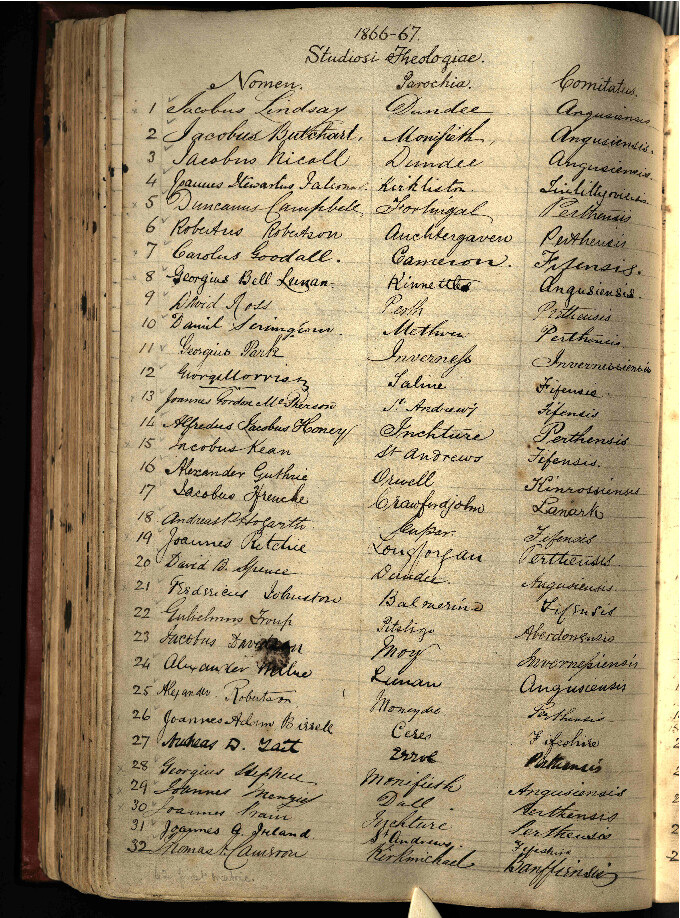 1866-67.
Studiosi Theologiae.
Nomen. Parochia. Comitatus.
1 Jacobus Lindsay Dundee Angusiensis
2 Jacobus Butchart. Monifieth. Angusiensis.
3 Jacobus Nicoll Dundee Angusiensis.
4 Joannes Stewartus Kirkliston
5 Duncanus Campbell Fortingal Perthensis
6 Robertus Robertson Auchtergaven Perthensis
7 Carolus Goodall. Cameron. Fifensis.
8 Georgius Bell Kinnettles Angusiensis.
9 David Ross Perth Perthensis
10 Daniel Methven Perthensis.
11 Georgius Park Inverness Invernessiensis
12 George Morrison Saline Fifensis
13 Joannes Gordon McPherson St Andrews Fifensis
14 Alfredus Jacobus Honey Inchture Perthensis
15 Jacobus Kean St Andrews Fifensis.
16 Alexander Guthrie Orwell Kinrossiensis
17 Jacobus Crawfordjohn Lanark
18 Andreas P. Hogarth Cupar Fifensis
19 Joannes Ritchie Longforgan Perthensis
20 David B. Spence Dundee. Angusiensis.
21 Fredericus Johnston Balmerino Fifensis
22 Gulielmus Troup Pitsligo Aberdonensis
23 Jacobus Davidson Moy Invernessiensis
24 Alexander Milne Lunan Angusiensis
25 Alexander Robertson Moneydie Perthensis
26 Joannes Adam Birrell Ceres Fifeshire
27 Andreas D. Tait Errol Perthensis
28 Georgius Stephen Monifieth Angusiensis
29 Joannes Menzies Dull Perthensis
30 Joannes Bain Inchture Perthensis
31 Joannes G. Ireland St Andrews Fifeshire
32 Thomas A Cameron Kirkmichael Banffiensis